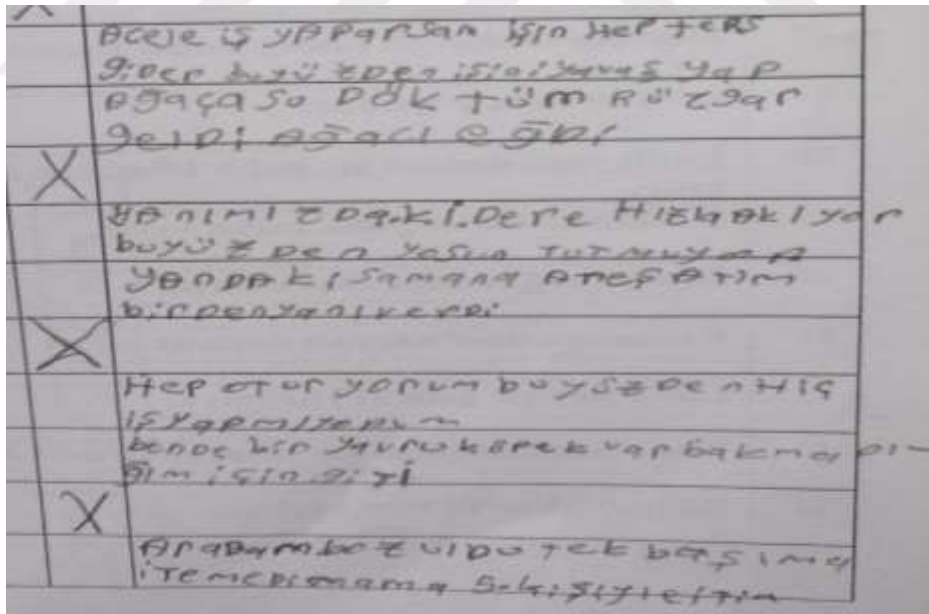 Acele iş yaparsan işin Hep ters
gider buyüzden işini yavaş yap
Ağaça so Döktüm Rüzgar
geldi Ağacı eğdi
X
yanımızdaki Dere Hızlı akıyor
buyüzden yosun tutmuyor
yandaki samana Ateş Attım
birden yanıverdi
X
Hep oturyorum buyüzden Hiç
iş yapmıyorum
bende bir yavru köpek var
için
X
Arabam bozuldu tek başıma
5 kişiyle ittim